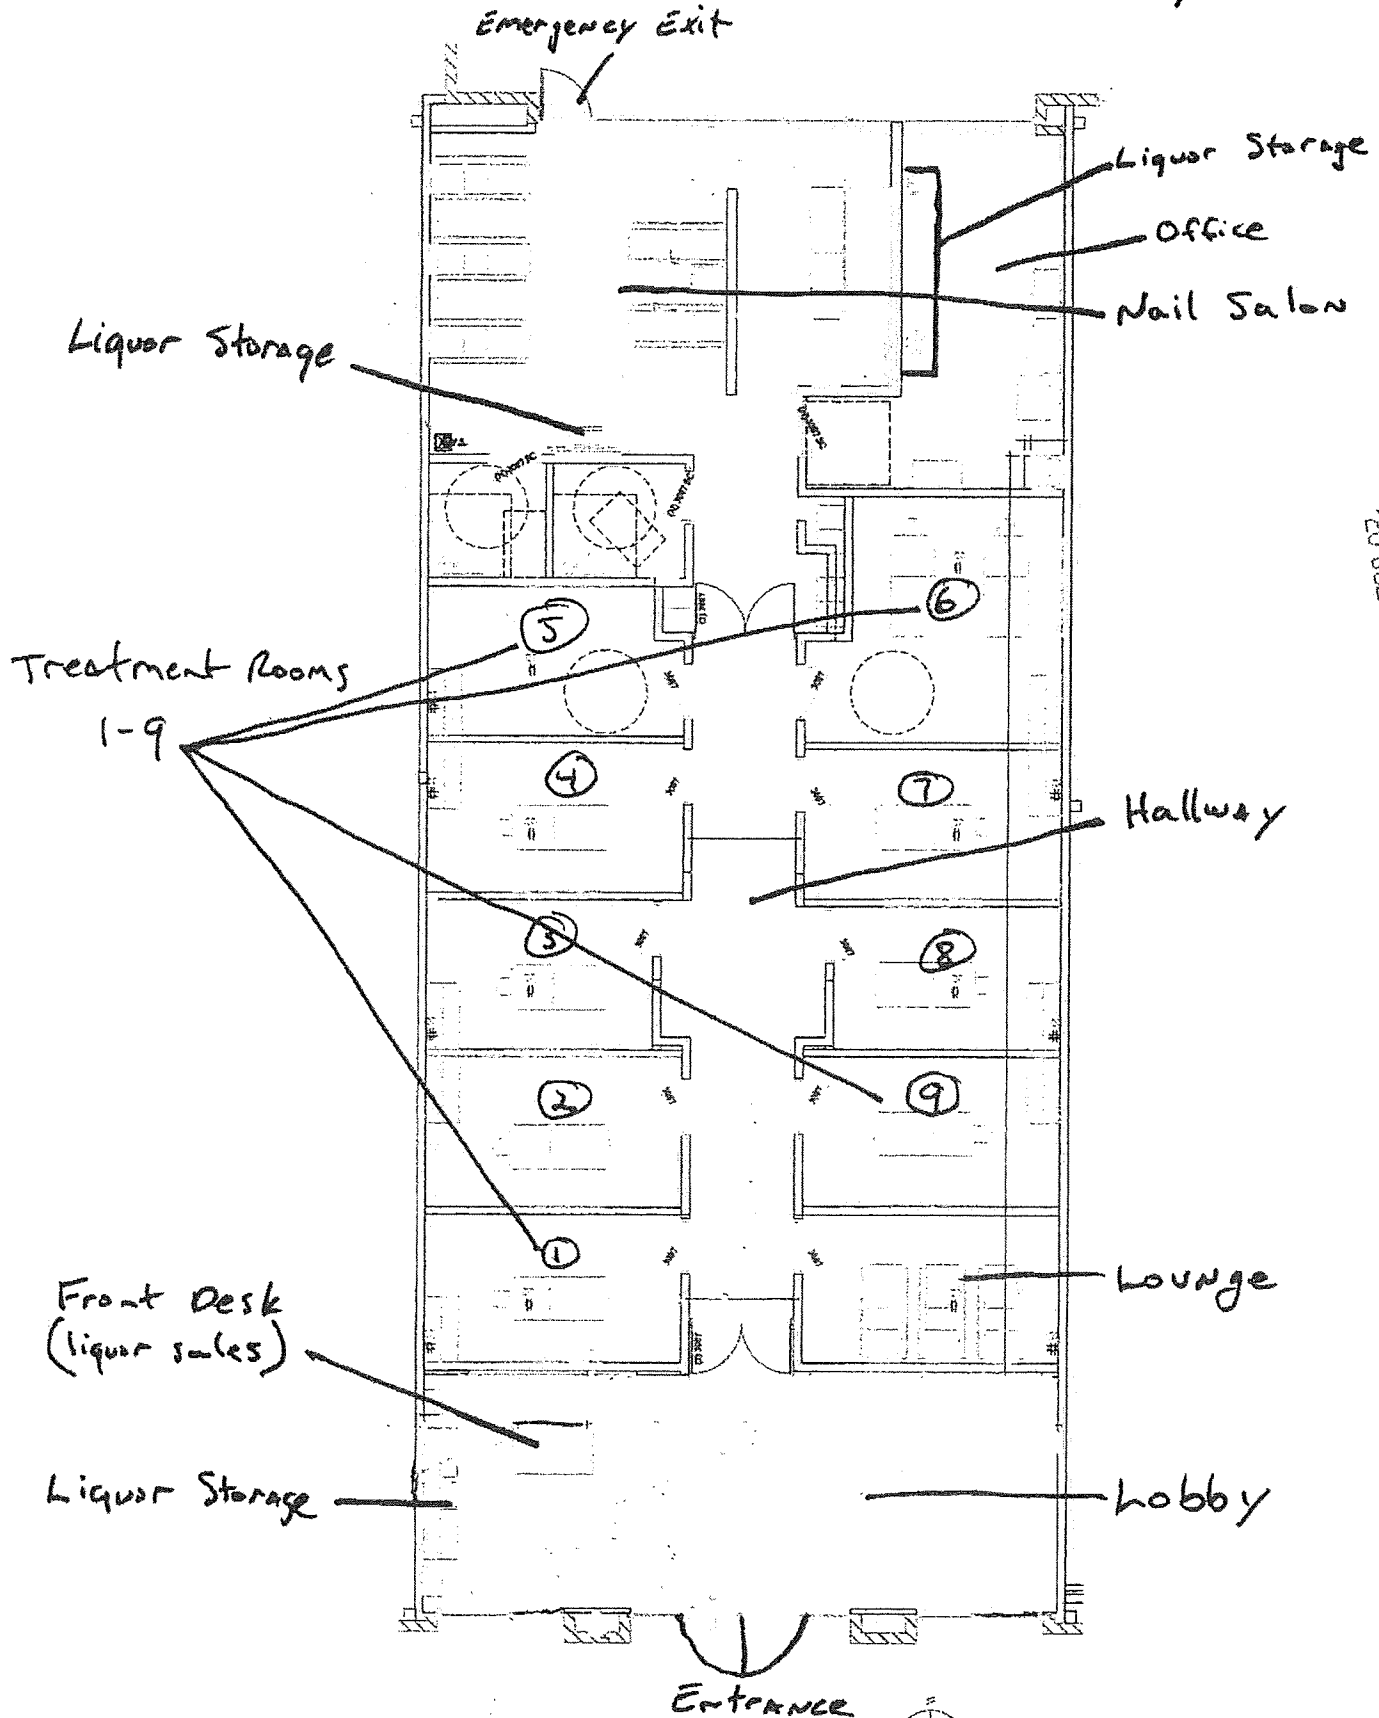 Emergency Exit
Liquor Storage
Office
Nail Salon
Liquor Storage
6
5
Treatment Rooms
1-9
4
7
Hallway
3
8
2
9
1
Lounge
Front Desk
(liquor sales)
Liquor Storage
Lobby
Entrance